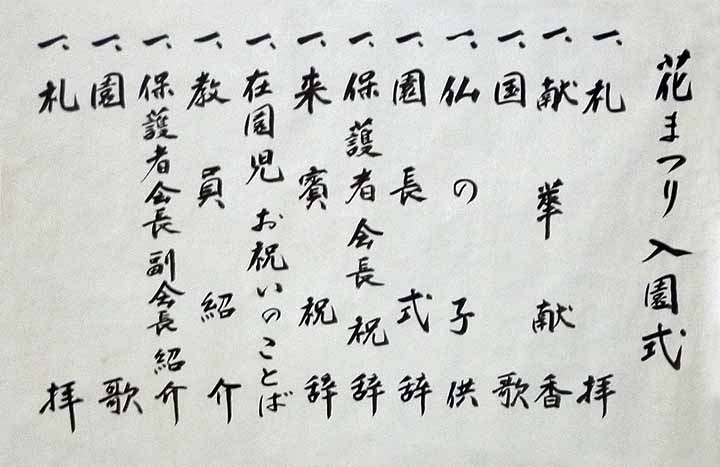 花まつり入園式
一、礼拝
一、献華献香
一、国歌
一、仏の子供
一、園長式辞
一、保護者会長祝辞
一、来賓祝辞
一、在園児お祝いのことば
一、教員紹介
一、保護者会長副会長紹介
一、園歌
一、礼拝